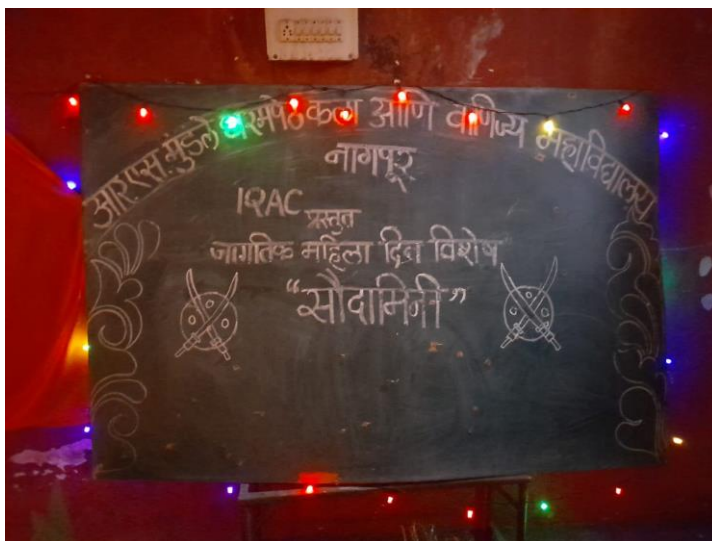 आर.एस. मुंडले धरमपेठ कला आणि वाणिज्य महाविद्यालय
नागपूर
IQAC
प्रस्तुत
जागतिक महिला दिन विशेष
“सौदामिनी”